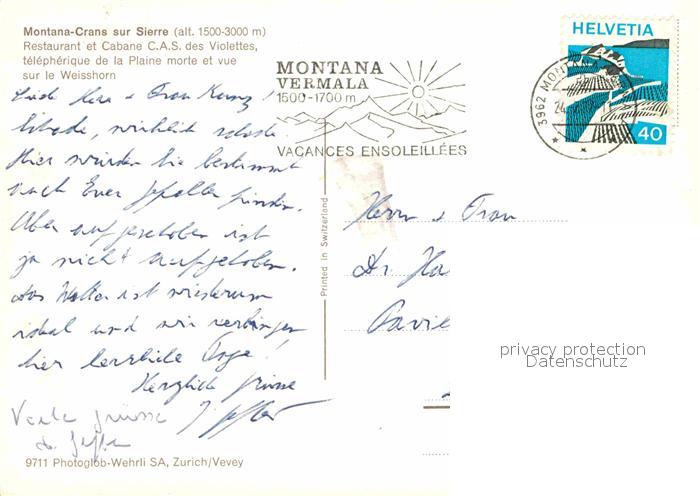 Montana-Crans sur Sierre (alt. 1500-3000 m)
Restaurant et Cabane C.A.S. des Violettes,
téléphérique de la Plaine morte et vue
sur le Weisshorn
MONTANA
VERMALA
1500-1700 m
VACANCES ENSOLEILLÉES
3962 MONTANA
24.
HELVETIA
40
Herr & Frau
schade, wirklich schade
Hier würden Sie bestimmt
nach Euer Gefallen finden.
Aber aufgeschoben ist
ja nicht aufgehoben.
Das Wetter ist wiederum
ideal und wir verbringen
hier herrliche Tage!
Herzliche Grüsse
Grüsse
Printed in Switzerland
Herrn & Frau
Dr. Ha
privacy protection
Datenschutz
9711 Photoglob-Wehrli SA, Zurich/Vevey